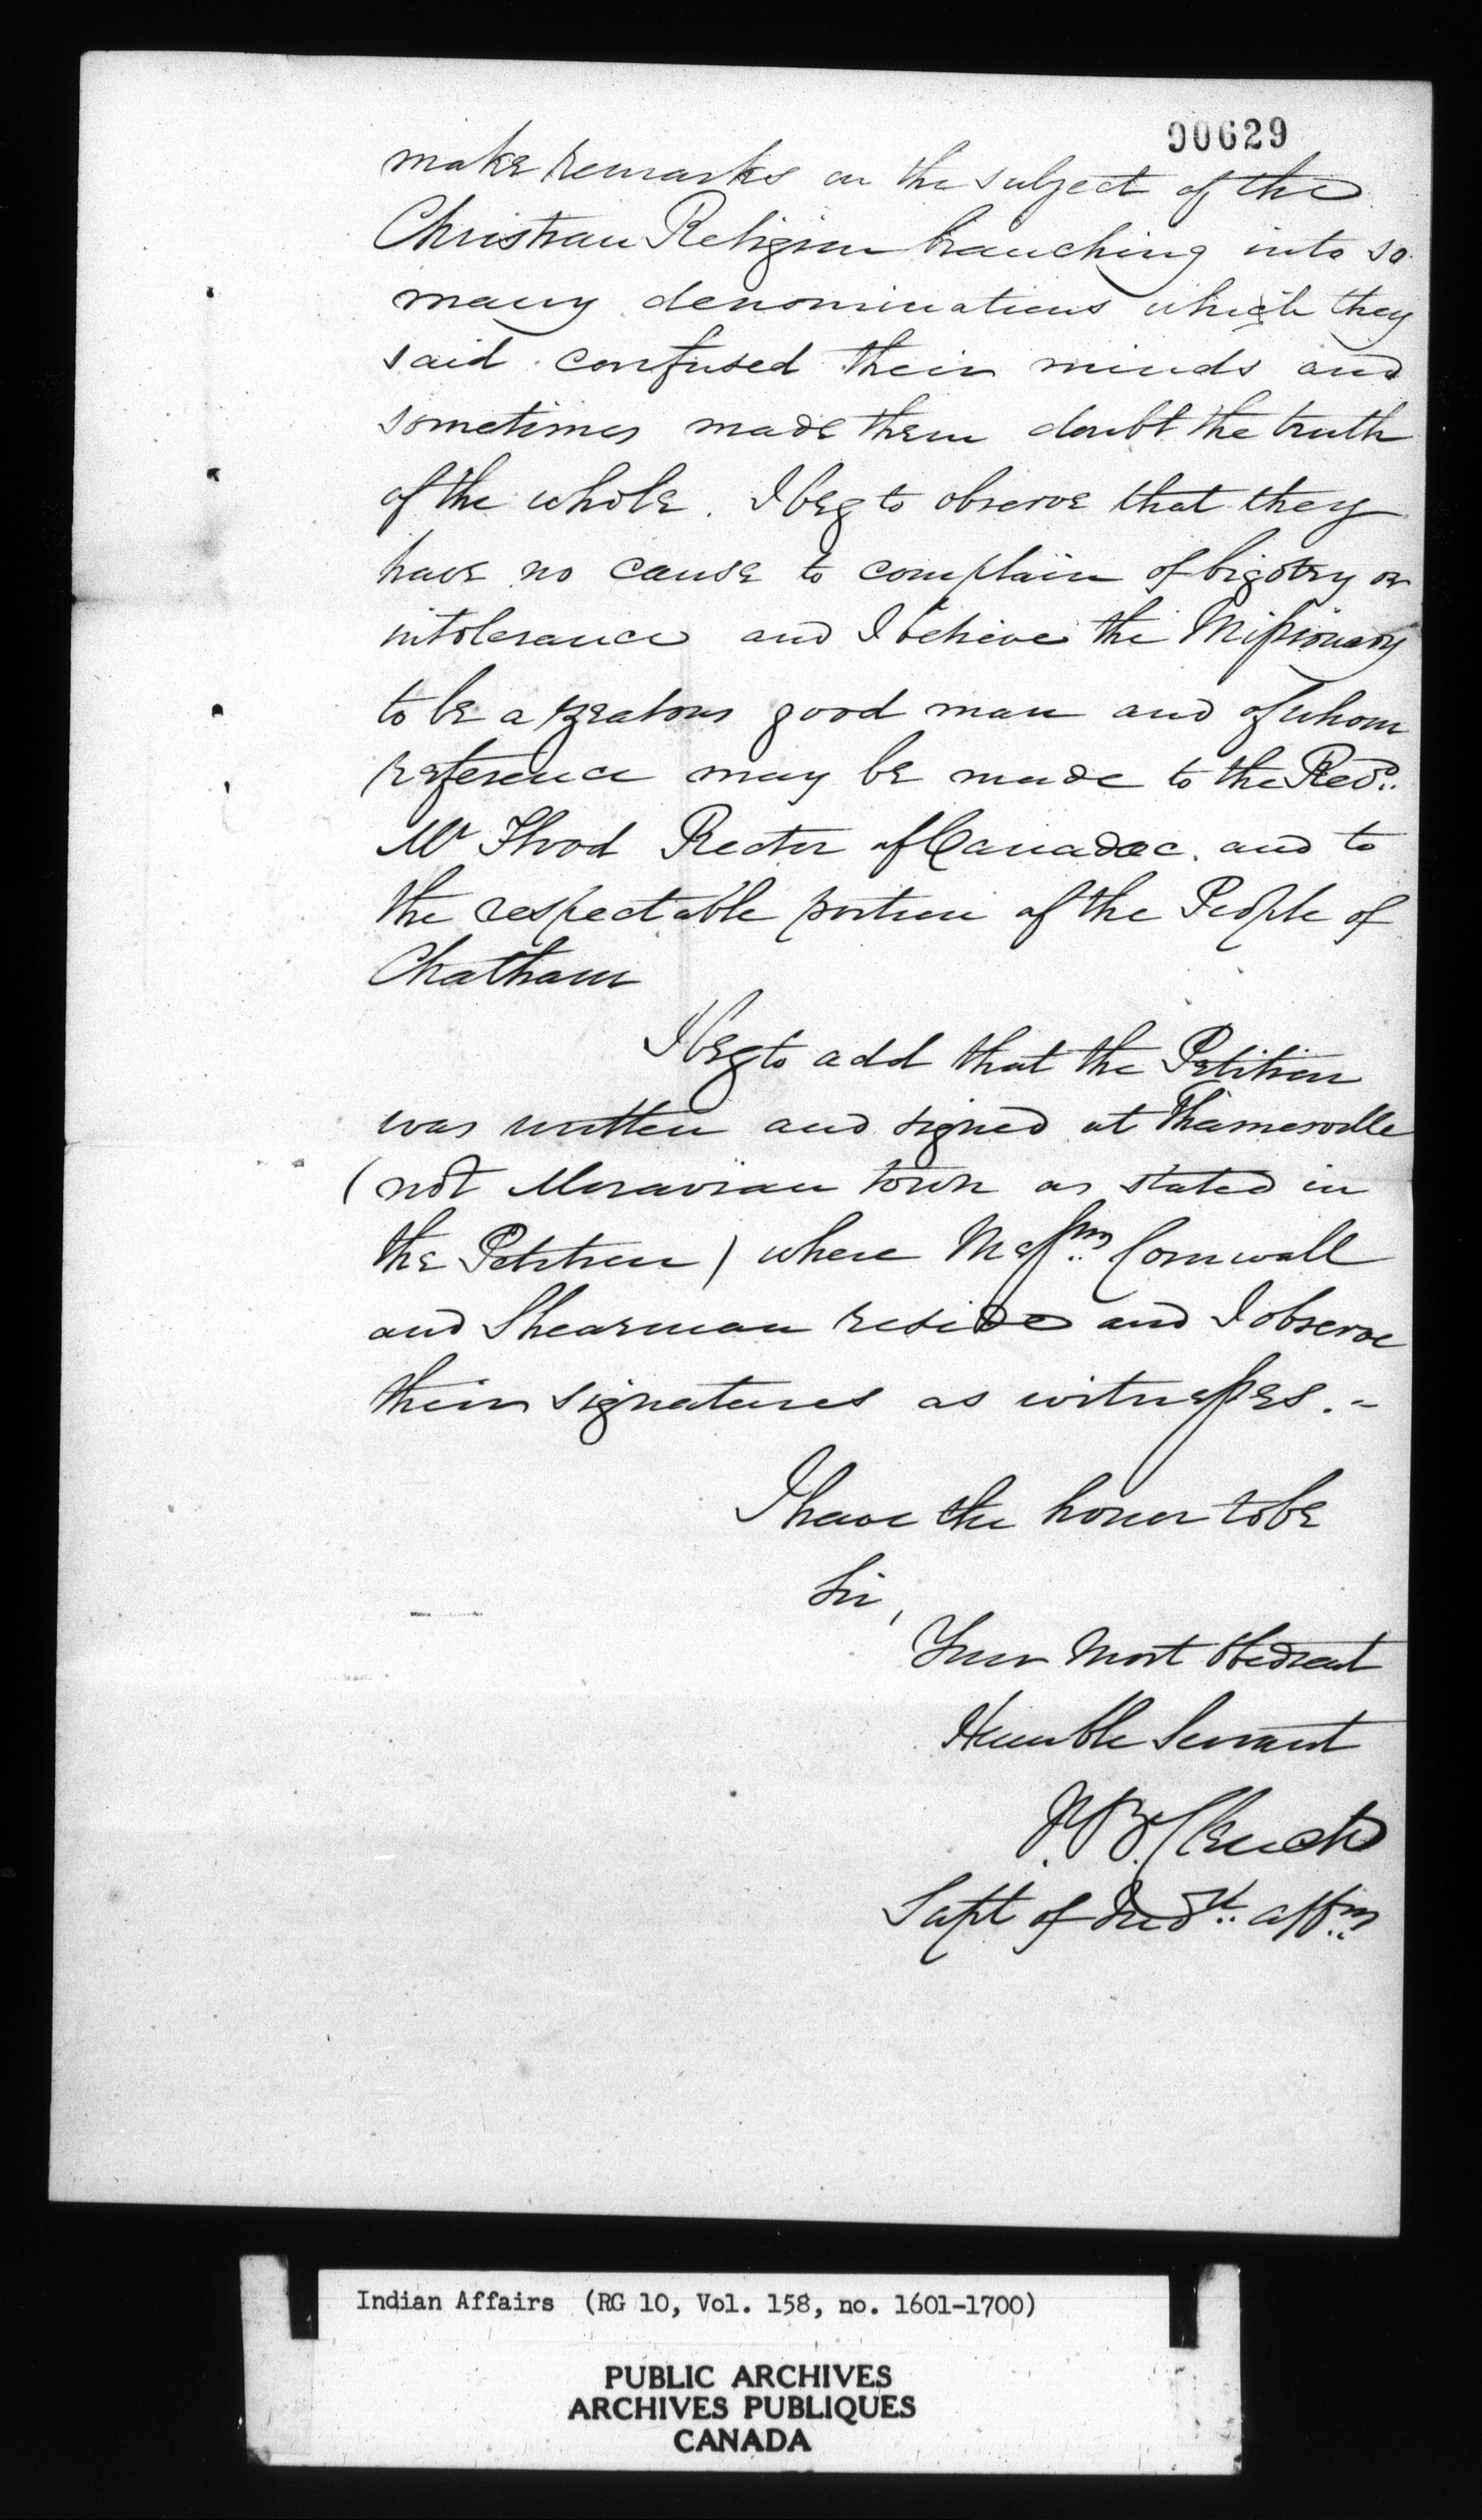 90629
make remarks on the subject of the
Christian Religion branching into so
many denominations which they
said confused their minds and
sometimes made them doubt the truth
of the whole. I beg to observe that they
have no cause to complain of bigotry or
intolerance and I believe the Missionary
to be a zealous good man and of whom
reference may be made to the Revd.
Mr Flood Rector of Caradoc. and to
the respectable portion of the People of
Chatham
I beg to add that the Petition
was written and signed at Thamesville
(not Moravian town as stated in
the Petition) where Messrs. Cornwall
and Shearman reside and I observe
their signatures as witnesses. -
I have the honor to be
Sir,
Your Most Obedient
Humble Servant
J. B. Clench
Supt of Indn. affrs
Indian Affairs (RG 10, Vol. 158, no. 1601-1700)
PUBLIC ARCHIVES
ARCHIVES PUBLIQUES
CANADA